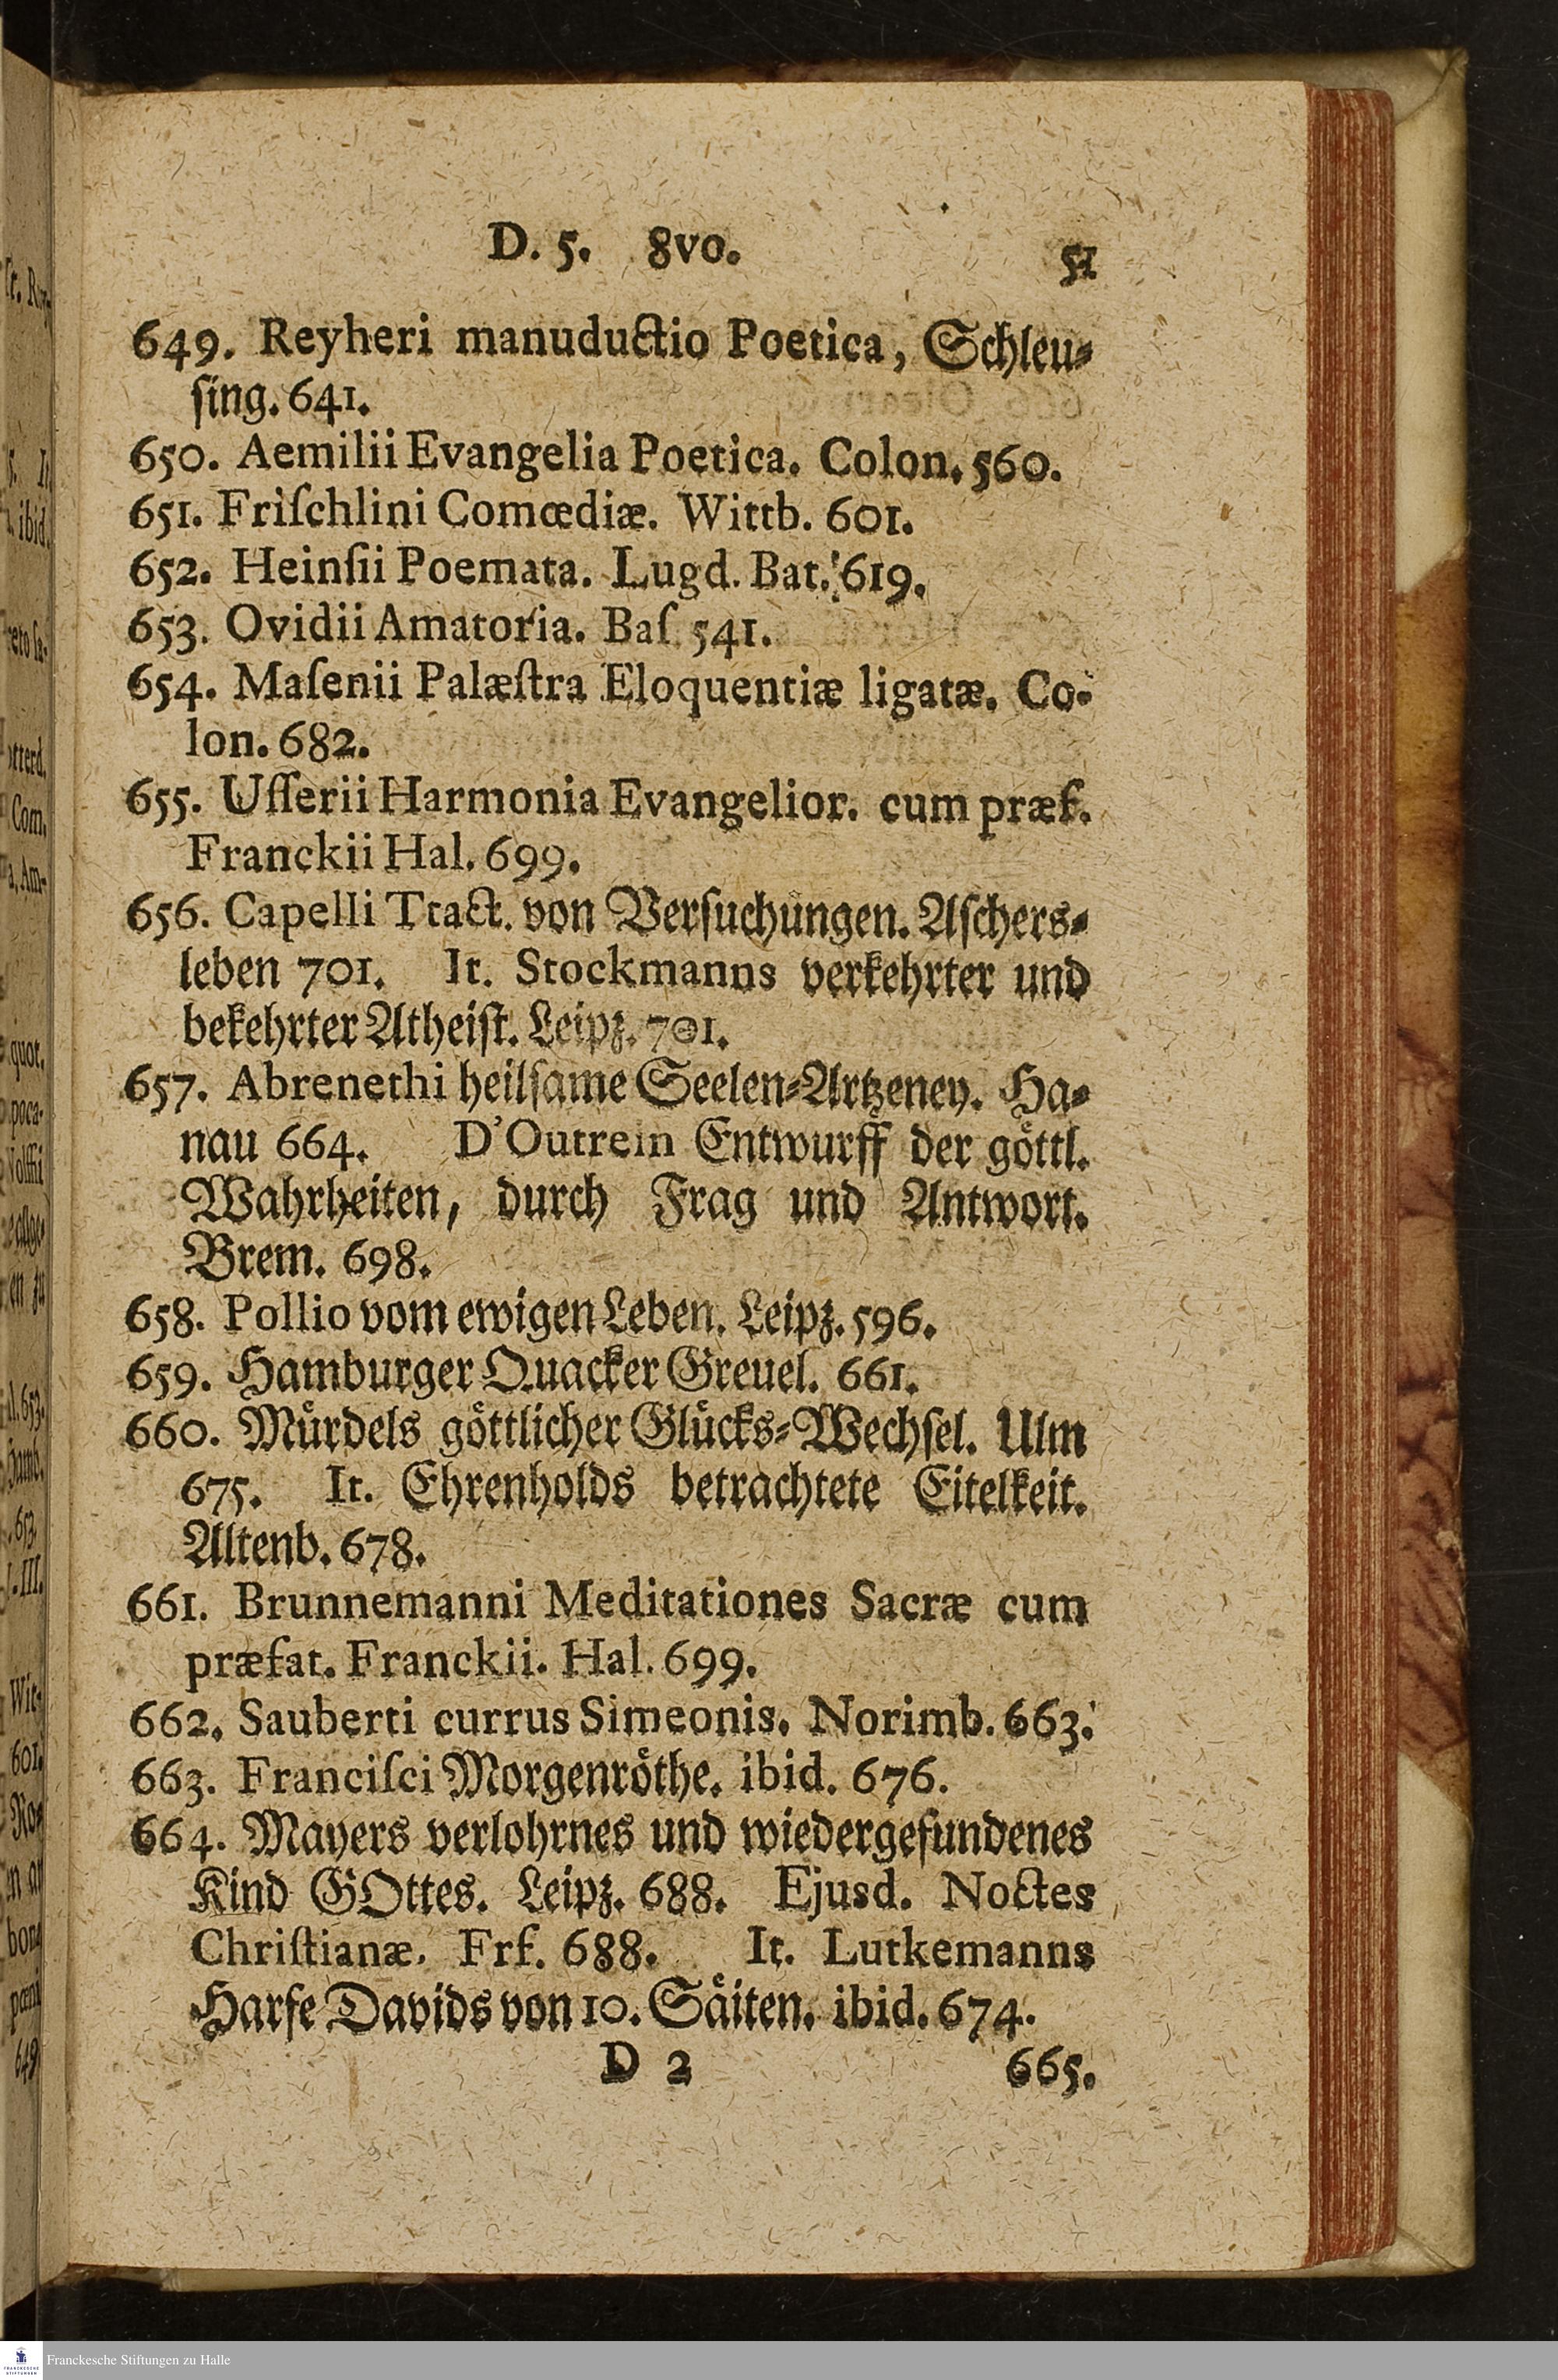 D. 5. 8vo. 51
649. Reyheri manuductio Poetica, Schleu⸗
sing. 641.
650. Aemilii Evangelia Poetica. Colon. 560.
651. Friſchlini Comœdiæ. Wittb. 601.
652. Heinſii Poemata. Lugd. Bat. 619.
653. Ovidii Amatoria. Baſ. 541.
654. Maſenii Palæſtra Eloquentiæ ligatæ. Co-
lon. 682.
655. Uſſerii Harmonia Evangelior. cum præf.
Franckii Hal. 699.
656. Capelli Tract. von Verſuchungen. Aſchers⸗
leben 701. It. Stockmanns verkehrter und
bekehrter Atheiſt. Leipz. 701.
657. Abrenethi heilſame Seelen⸗Artzeney. Ha⸗
nau 664. D'Outrein Entwurff der göttl.
Wahrheiten, durch Frag und Antwort.
Brem. 698.
658. Pollio vom ewigen Leben. Leipz. 596.
659. Hamburger Quacker Greuel. 661.
660. Mürdels göttlicher Glücks⸗Wechſel. Ulm
675. It. Ehrenholds betrachtete Eitelkeit.
Altenb. 678.
661. Brunnemanni Meditationes Sacræ cum
præfat. Franckii. Hal. 699.
662. Sauberti currus Simeonis. Norimb. 663.
663. Franciſci Morgenröthe. ibid. 676.
664. Mayers verlohrnes und wiedergefundenes
Kind GOttes. Leipz. 688. Ejusd. Noctes
Chriſtianæ. Frf. 688. It. Lutkemanns
Harfe Davids von 10. Säiten. ibid. 674.
D 2 665.
Franckesche Stiftungen zu Halle